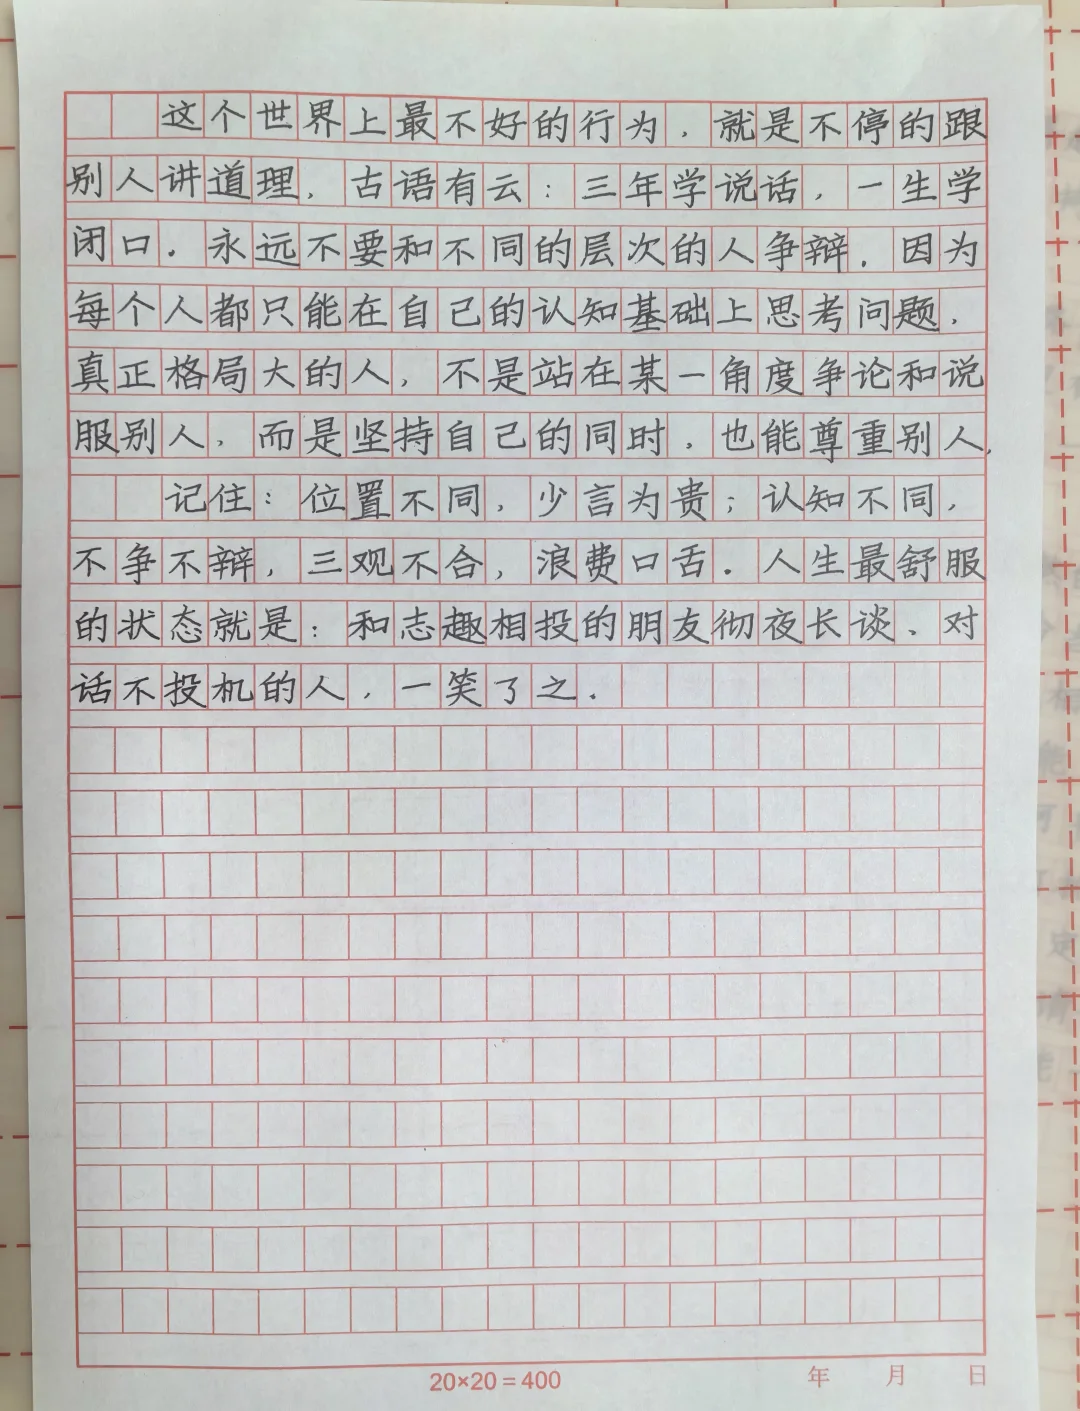 这个世界上最不好的行为，就是不停的跟
别人讲道理，古语有云：三年学说话，一生学
闭口．永远不要和不同的层次的人争辩．因为
每个人都只能在自己的认知基础上思考问题．
真正格局大的人，不是站在某一角度争论和说
服别人，而是坚持自己的同时，也能尊重别人．
记住：位置不同，少言为贵；认知不同，
不争不辩，三观不合，浪费口舌．人生最舒服
的状态就是：和志趣相投的朋友彻夜长谈、对
话不投机的人，一笑了之．
20×20=400 年 月 日